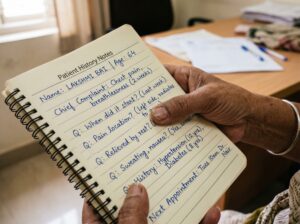 Patient History Notes
Name: LAKSHMI BAI | Age: 64
Chief Complaint: Chest pain,
breathlessness (2 weeks)
Q: When did it start? (Last week)
Q: Pain location? (Left side,
Q: Relieved by rest?
Q: Sweating, nausea?
Q: History - Hypertension
Diabetes (8 yrs)
Next Appointment: Tues 3pm Dr.
Nair